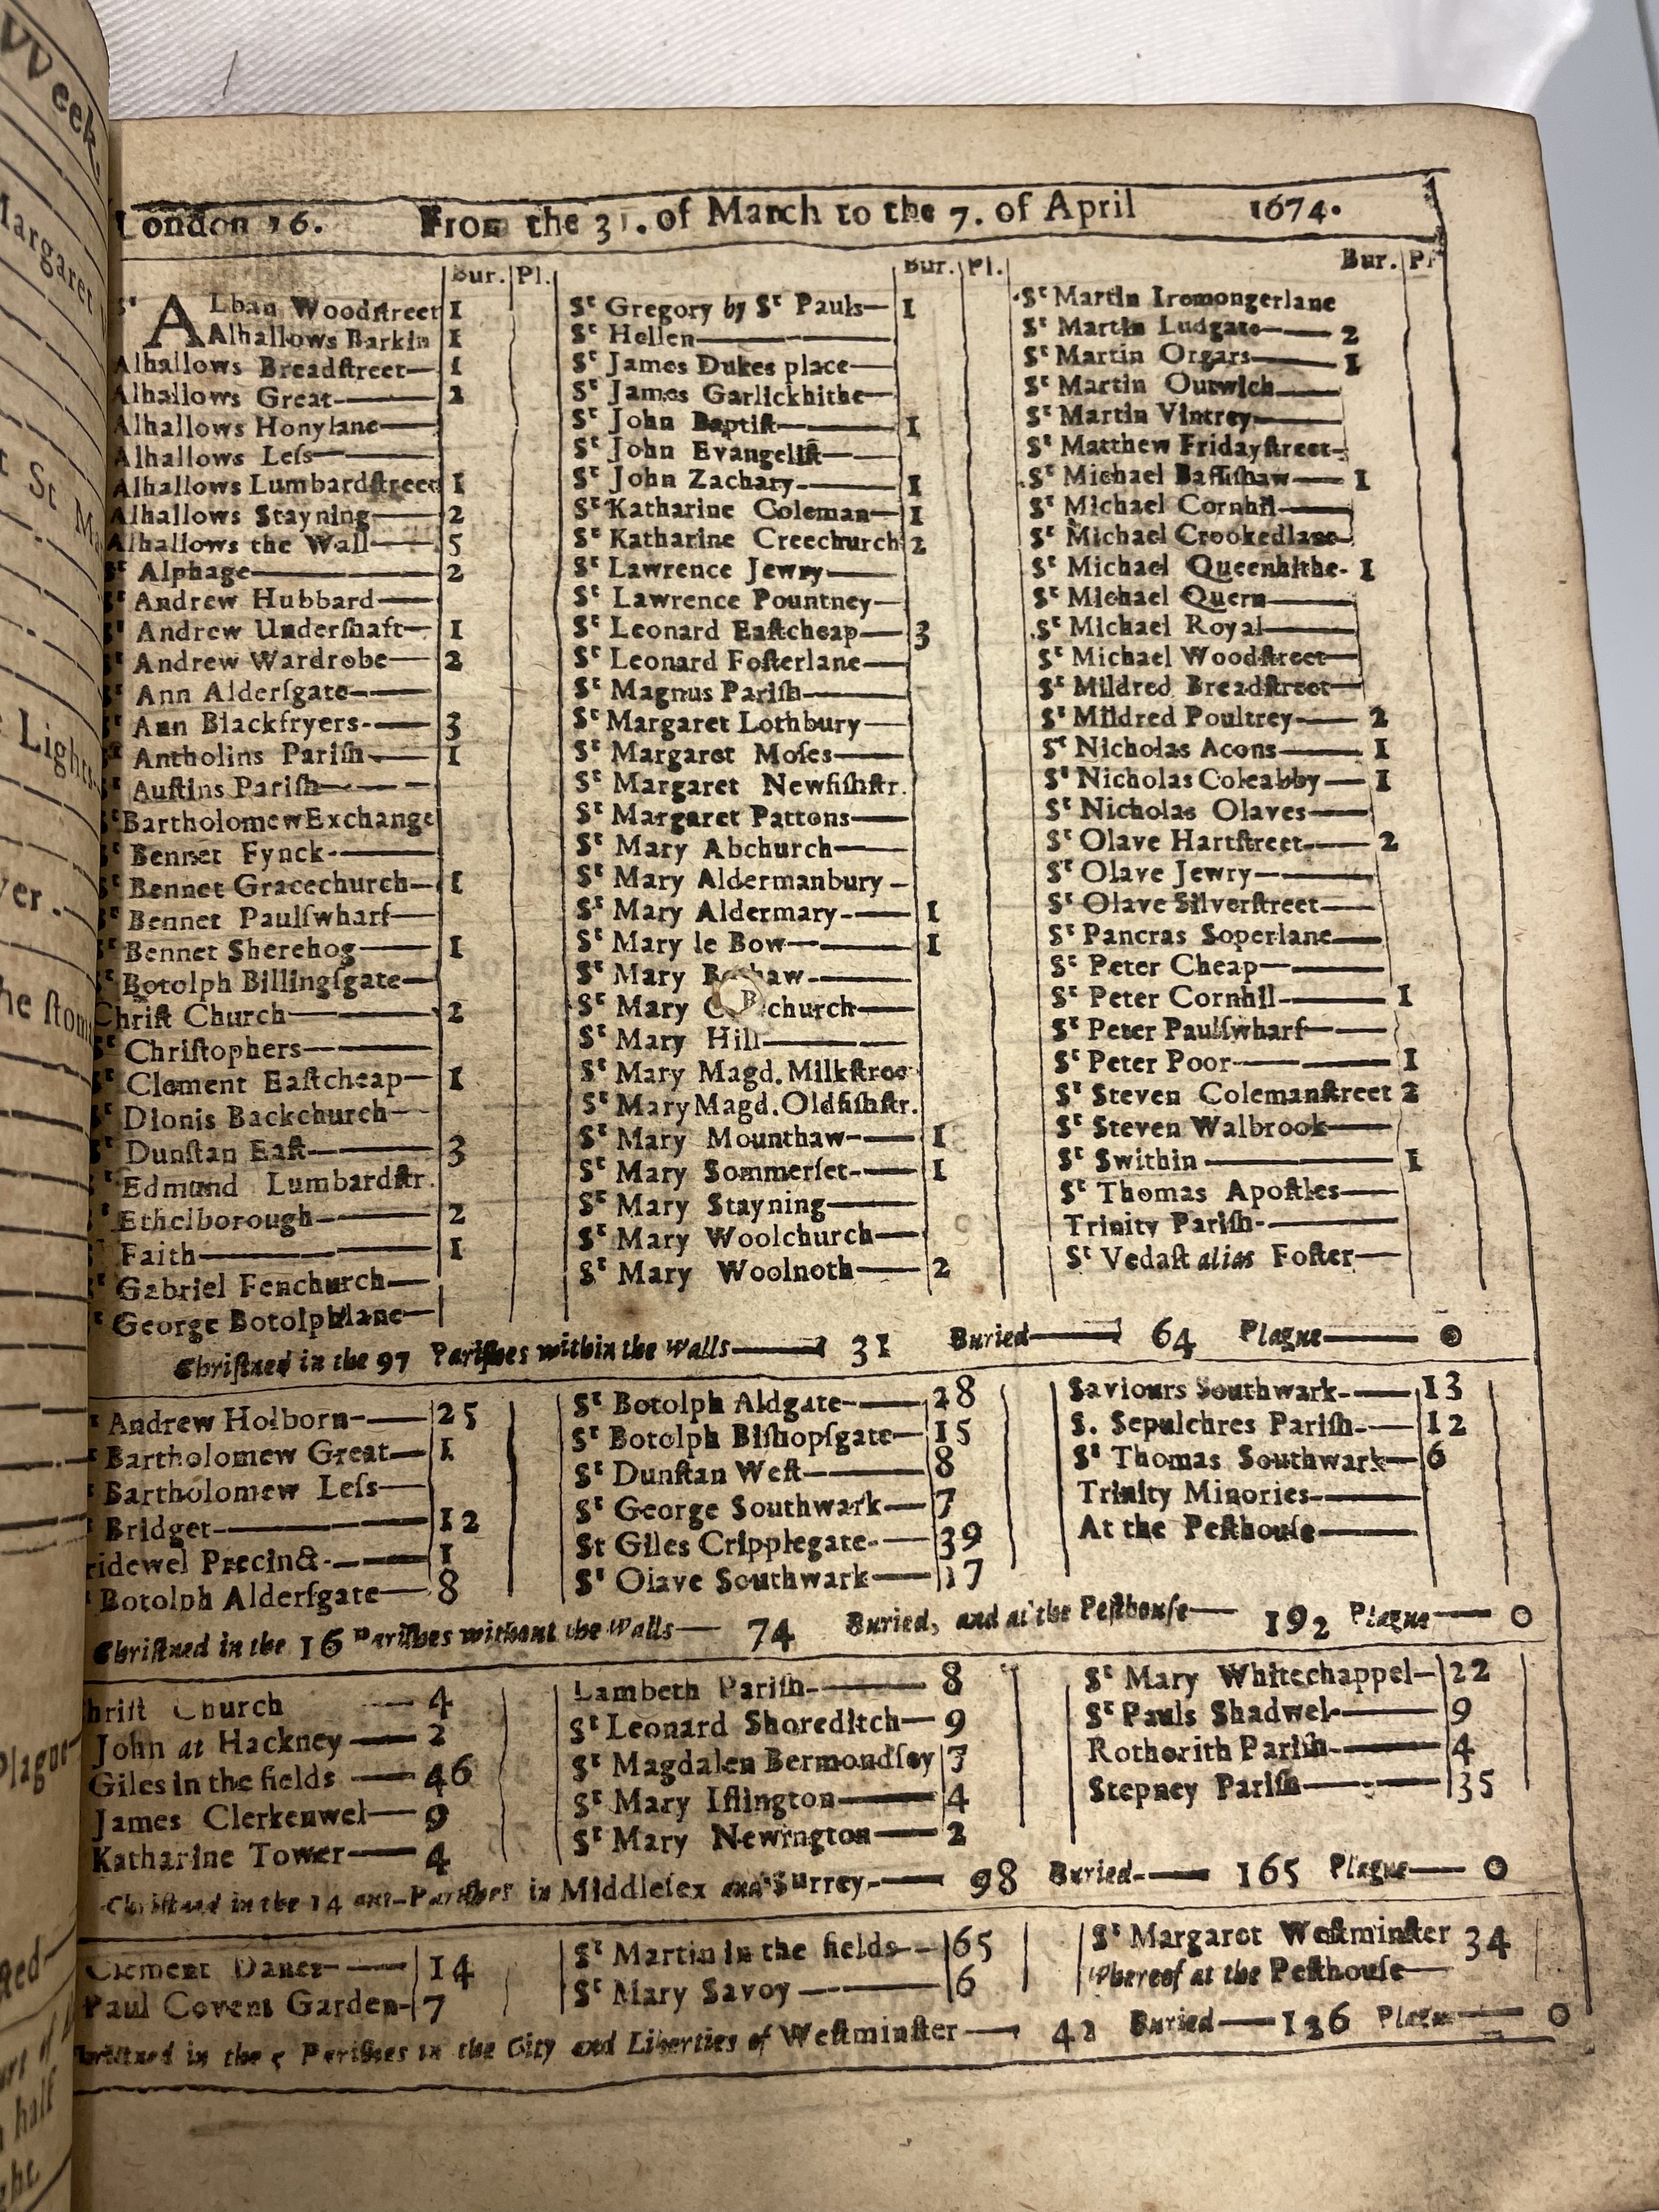 VVeek,
Margaret
t St Ma
Lights
ver.
he ſtom
Plague
London 16. From the 31. of March to the 7. of April 1674.
Bur. Pl.
St ALban Woodſtreet 1
Alhallows Barkin 1
Alhallows Breadſtreet— 1
Alhallows Great— 2
Alhallows Honylane—
Alhallows Leſs—
Alhallows Lumbardſtreet 1
Alhallows Stayning— 2
Alhallows the Wall— 5
St Alphage— 2
St Andrew Hubbard—
St Andrew Underſhaft— 1
St Andrew Wardrobe— 2
St Ann Alderſgate—
St Ann Blackfryers— 3
St Antholins Pariſh— 1
St Auſtins Pariſh—
St Bartholomew Exchange
St Bennet Fynck—
St Bennet Gracechurch— 1
St Bennet Paulſwharf—
St Bennet Sherehog— 1
St Botolph Billingſgate—
Chriſt Church— 2
St Chriſtophers—
St Clement Eaſtcheap— 1
St Dionis Backchurch—
St Dunſtan Eaſt— 3
St Edmund Lumbardſtr.
St Ethelborough— 2
St Faith— 1
St Gabriel Fenchurch—
St George Botolphlane—
Bur. Pl.
St Gregory by St Pauls— 1
St Hellen—
St James Dukes place—
St James Garlickhithe—
St John Baptiſt— 1
St John Evangeliſt—
St John Zachary— 1
St Katharine Coleman— 1
St Katharine Creechurch 2
St Lawrence Jewry—
St Lawrence Pountney—
St Leonard Eaſtcheap— 3
St Leonard Foſterlane—
St Magnus Pariſh—
St Margaret Lothbury—
St Margaret Moſes—
St Margaret Newfiſhſtr.
St Margaret Pattons—
St Mary Abchurch—
St Mary Aldermanbury—
St Mary Aldermary— 1
St Mary le Bow— 1
St Mary
St Mary
St Mary Hill—
St Mary Magd. Milkſtree
St Mary Magd. Oldfiſhſtr.
St Mary Mounthaw— 1
St Mary Sommerſet— 1
St Mary Stayning—
St Mary Woolchurch—
St Mary Woolnoth— 2
Bur. Pl
St Martin Iremongerlane
St Martin Ludgate— 2
St Martin Orgars— 1
St Martin Outwich—
St Martin Vintrey—
St Matthew Fridayſtreet—
St Michael Baſſiſhaw— 1
St Michael Cornhil—
St Michael Crookedlane—
St Michael Queenhithe- 1
St Michael Quern—
St Michael Royal—
St Michael Woodſtreet—
St Mildred Breadſtreet—
St Mildred Poultrey— 2
St Nicholas Acons— 1
St Nicholas Coleabby— 1
St Nicholas Olaves—
St Olave Hartſtreet— 2
St Olave Jewry—
St Olave Silverſtreet—
St Pancras Soperlane—
St Peter Cheap—
St Peter Cornhil— 1
St Peter Paulſwharf—
St Peter Poor— 1
St Steven Colemanſtreet 2
St Steven Walbrook—
St Swithin— 1
St Thomas Apoſtles—
Trinity Pariſh—
St Vedaſt alias Foſter—
Chriſtned in the 97 Pariſhes within the Walls— 31 Buried— 64 Plague— 0
Andrew Holborn— 25
Bartholomew Great— 1
Bartholomew Leſs—
Bridget— 12
ridewel Precinct— 1
Botolph Alderſgate— 8
St Botolph Aldgate— 28
St Botolph Biſhopſgate— 15
St Dunſtan Weſt— 8
St George Southwark— 7
St Giles Cripplegate— 39
St Olave Southwark— 17
Saviours Southwark— 13
S. Sepulchres Pariſh— 12
St Thomas Southwark— 6
Trinity Minories—
At the Peſthouſe—
Chriſtned in the 16 Pariſhes without the Walls— 74 Buried, and at the Peſthouſe— 192 Plague— 0
hriſt Church — 4
John at Hackney — 2
Giles in the fields — 46
James Clerkenwel— 9
Katharine Tower— 4
Lambeth Pariſh— 8
St Leonard Shoreditch— 9
St Magdalen Bermondſey 7
St Mary Iſlington— 4
St Mary Newington— 2
St Mary Whitechappel— 22
St Pauls Shadwel— 9
Rotherith Pariſh— 4
Stepney Pariſh— 35
Chriſtned in the 14 out-Pariſhes in Middleſex and Surrey— 98 Buried— 165 Plague— 0
Clement Danes— 14
Paul Covent Garden- 7
St Martin in the fields— 65
St Mary Savoy— 6
St Margaret Weſtminſter 34
Whereof at the Peſthouſe—
Chriſtned in the 5 Pariſhes in the City and Liberties of Weſtminſter— 42 Buried— 126 Plague— 0